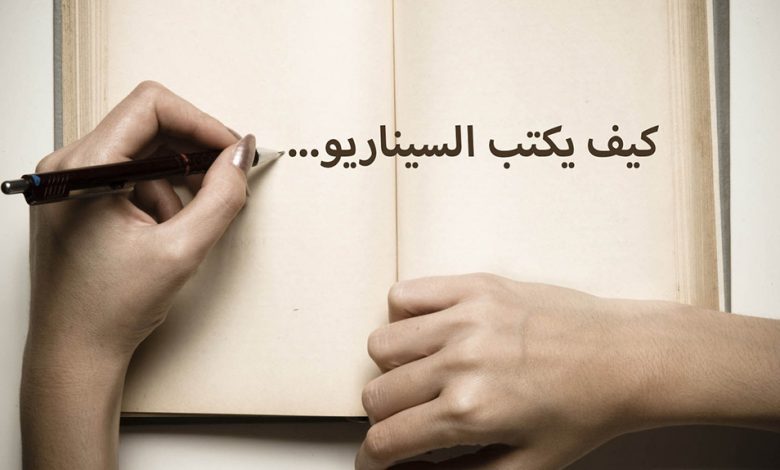 كيف يكتب السيناريو...